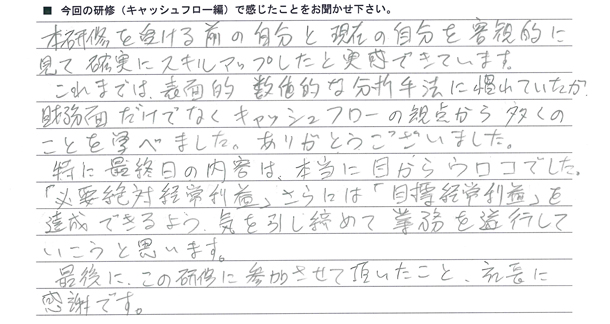 ■ 今回の研修（キャッシュフロー編）で感じたことをお聞かせ下さい。
本研修を受ける前の自分と現在の自分を客観的に
見て確実にスキルマップしたと実感できています。
これまでは、表面的 数値的な分析手法に慣れていたが
財務面だけでなくキャッシュフローの観点から多くの
ことを学べました。ありがとうございました。
特に最終日の内容は、本当に目からウロコでした。
「必要絶対経常利益」さらには「目標経常利益」を
達成できるよう、気を引し締めて業務を遂行して
いこうと思います。
最後に、この研修に参加させて頂いたこと、社長に
感謝です。